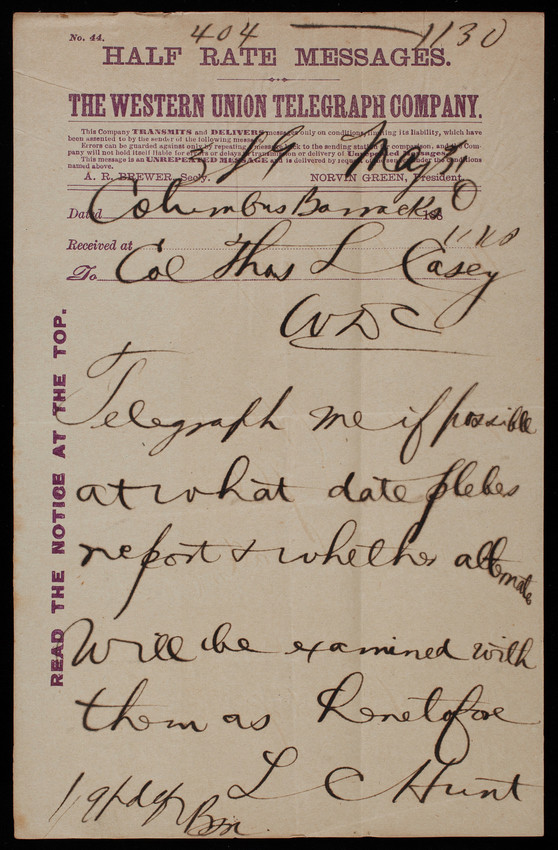 No. 44.
404 1130
HALF RATE MESSAGES.
THE WESTERN UNION TELEGRAPH COMPANY.
This Company TRANSMITS and DELIVERS messages only on conditions, limiting its liability, which have
been assented to by the sender of the following message.
Errors can be guarded against only by repeating a message back to the sending station for comparison, and the Com-
pany will not hold itself liable for errors or delays in transmission or delivery of Unrepeated Messages.
This message is an UNREPEATED MESSAGE and is delivered by request of the sender under the conditions
named above.
A. R. BREWER, Secy. NORVIN GREEN, President.
19 May
Dated Columbus Barracks O 188
Received at 1110
To Col Thos L Casey
W D C
Telegraph me if possible
at what date plebes
report & whether alternates
Will be examined with
them as heretofore
L C Hunt
READ THE NOTICE AT THE TOP.